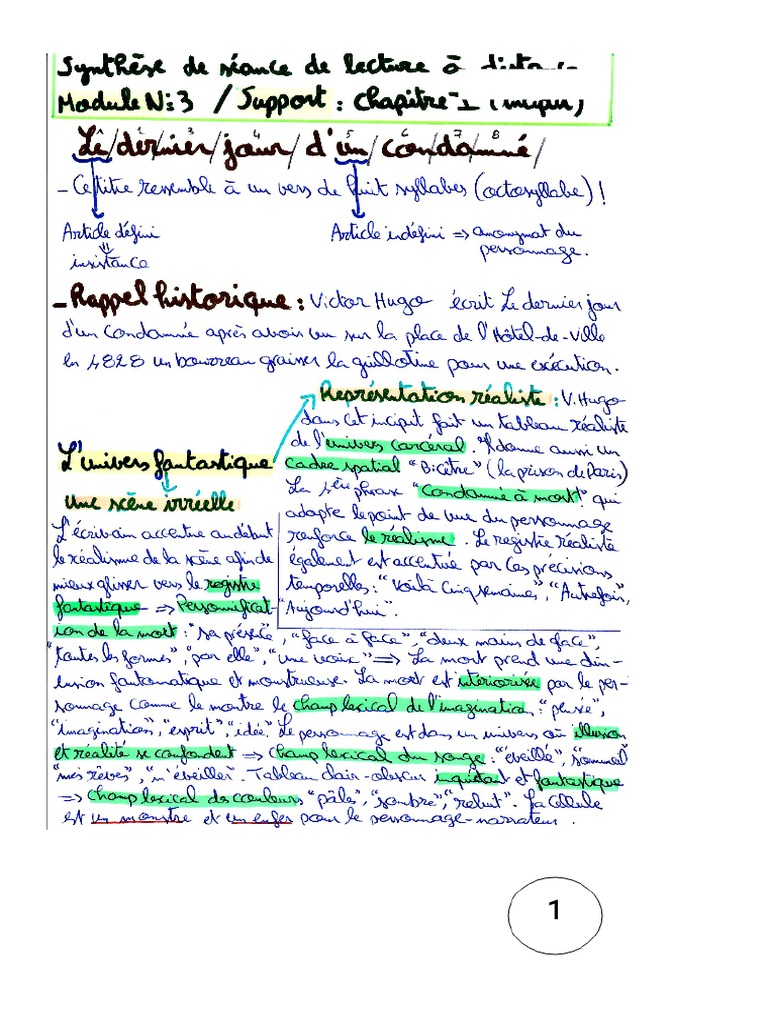 Synthèse de séance de lecture à
Module N: 3 / Support : Chapitre 1 (incipit)
Le/dernier/jour/d'un/condamné/
3 4 5 6 7 8
- Ce titre ressemble à un vers de huit syllabes (octosyllabe) !
Article défini
⇓
insistance
Article indéfini ⇒ anonymat du
personnage.
- Rappel historique : Victor Hugo écrit Le dernier jour
d'un Condamné après avoir vu sur la place de l'Hôtel-de-Ville
en 1828 un bourreau graisser la guillotine pour une exécution.
Représentation réaliste : V. Hugo
dans cet incipit fait un tableau réaliste
de l'univers carcéral. Il donne aussi un
cadre spatial "Bicêtre" (la prison de Paris)
La 1ère phrase "Condamné à mort !" qui
adopte le point de vue du personnage
renforce le réalisme. Le registre réaliste
également est accentué par ces précisions
temporelles : "Voilà cinq semaines", "Autrefois",
"Aujourd'hui".
L'univers fantastique
Une scène irréelle
L'écrivain accentue au début
le réalisme de la scène afin de
mieux glisser vers le registre
fantastique ⇒ Personnificat-
ion de la mort : "sa présence", "face à face", "deux mains de face",
"toutes les formes", "par elle", "une voix" ⇒ La mort prend une dim-
ension fantomatique et monstrueuse. La mort est intériorisée par le per-
sonnage comme le montre le champ lexical de l'imagination : "pensée",
"imagination", "esprit", "idée". Le personnage est dans un univers où illusion
et réalité se confondent ⇒ Champ lexical du songe : "éveillé", "sommeil"
"mes rêves", "m'éveiller". Tableau clair-obscur inquiétant et fantastique
⇒ Champ lexical des couleurs "pâles", "sombre", "reluit". La cellule
est un monstre et un enfer pour le personnage-narrateur.
1